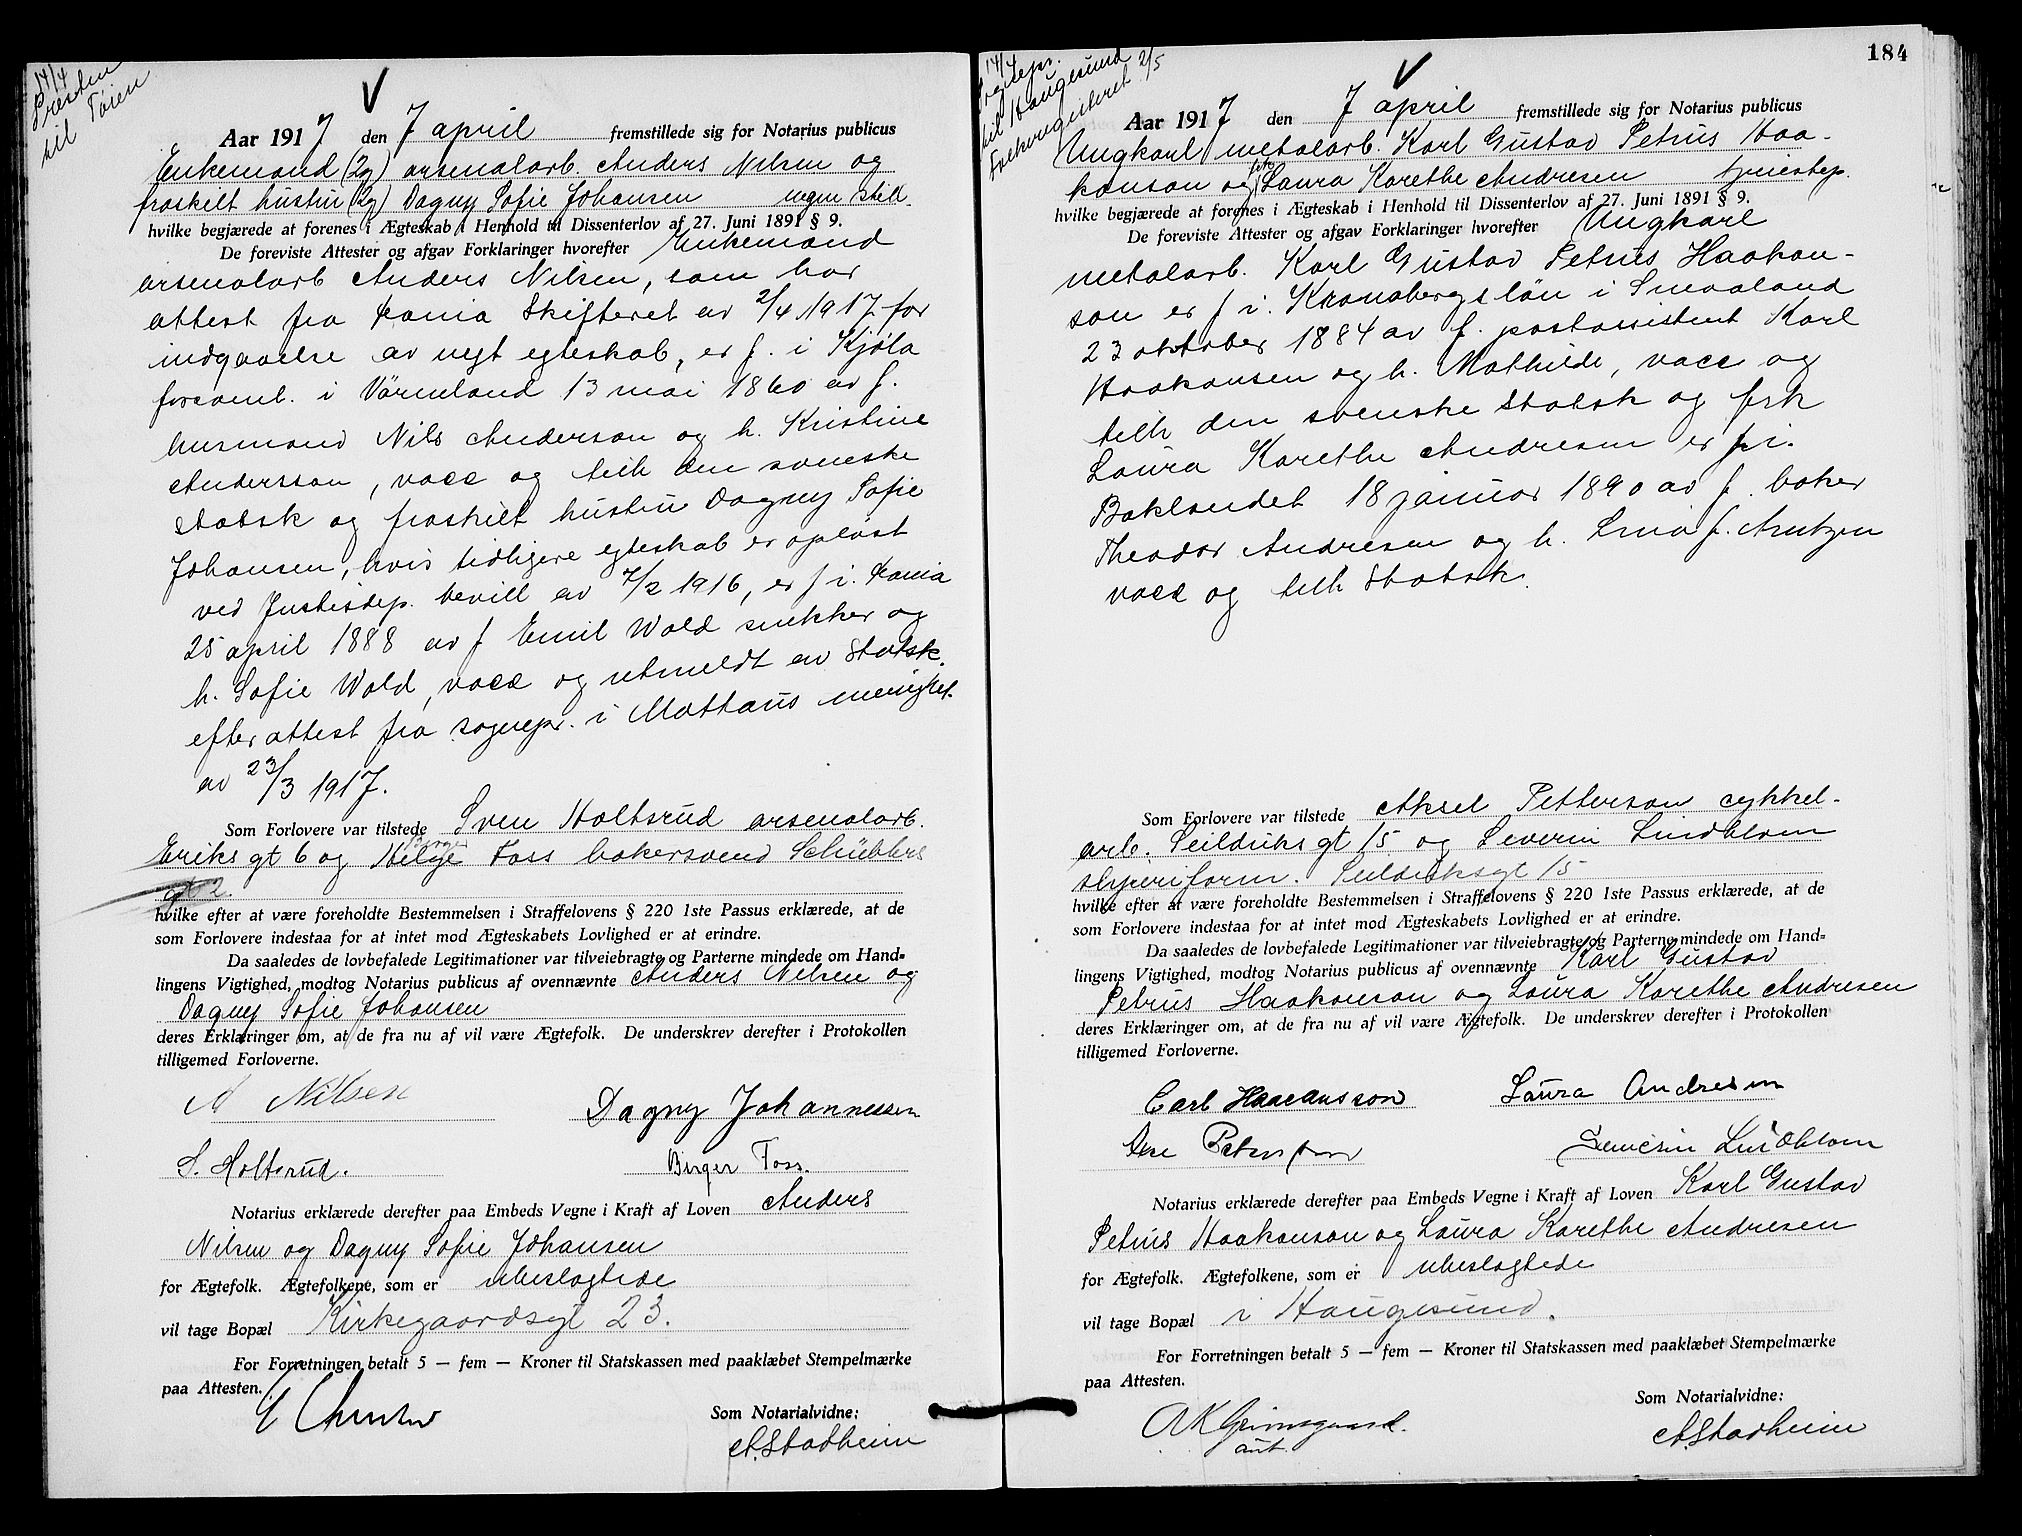 14/4
Presten
til Tøien
Aar 1917 den 7 april fremstillede sig for Notarius publicus
Enkemand (2g) arsenalarb. Anders Nilsen og
fraskilt hustru (2g) Dagny Sofie Johansen ingen still.
hvilke begjærede at forenes i Ægteskab i Henhold til Dissenterlov af 27. Juni 1891 § 9.
De foreviste Attester og afgav Forklaringer hvorefter Enkemand
arsenalarb Anders Nilsen, som har
attest fra Kania Skifteret av 2/4 1917 for
indgaaelse av nyt egteskab, er f. i Kjøla
forsaml. i Värmland 13 mai 1860 av f.
husmand Nils Anderson og h. Kristine
Andersson, vacc og tilh den svenske
statsk og fraskilt hustru Dagny Sofie
Johansen, hvis tidligere egteskab er opløst
ved Justisdep. bevill av 7/2 1916, er f i. Kania
25 april 1888 av f Emil Wold snekker og
h. Sofie Wold, vacc og utmeldt av Statsk.
efter attest fra sognepr. i Mattæus menighet.
av 23/3 1917.
Som Forlovere var tilstede Sven Holtsrud arsenalarb.
Eriks gt 6 og Helge Birger Foss bakersvend Schüblers
gt 2.
hvilke efter at være foreholdte Bestemmelsen i Straffelovens § 220 1ste Passus erklærede, at de
som Forlovere indestaa for at intet mod Ægteskabets Lovlighed er at erindre.
Da saaledes de lovbefalede Legitimationer var tilveiebragte og Parterne mindede om Hand-
lingens Vigtighed, modtog Notarius publicus af ovennævnte Anders Nilsen og
Dagny Sofie Johansen
deres Erklæringer om, at de fra nu af vil være Ægtefolk. De underskrev derefter i Protokollen
tilligemed Forloverne.
A Nilsen Dagny Johannessen
S. Holtsrud. Birger Foss.
Notarius erklærede derefter paa Embeds Vegne i Kraft af Loven Anders
Nilsen og Dagny Sofie Johansen
for Ægtefolk. Ægtefolkene, som er ubeslægtede
vil tage Bopæl Kirkegaardsgt 23.
For Forretningen betalt 5 — fem — Kroner til Statskassen med paaklæbet Stempelmærke
paa Attesten.
Som Notarialvidne:
A. Stadheim
184
14/4
Sognepr.
til Haugesund
Folkeregisteret 2/5
Aar 1917 den 7 april fremstillede sig for Notarius publicus
Ungkarl metalarb. Karl Gustav Petrus Haa-
konson og frk Laura Karethe Andresen tjenestep.
hvilke begjærede at forenes i Ægteskab i Henhold til Dissenterlov af 27. Juni 1891 § 9.
De foreviste Attester og afgav Forklaringer hvorefter Ungkarl
metalarb. Karl Gustav Petrus Haakon-
son er f i. Kronobergs län i Smaaland
23 oktober 1884 av f. postassistent Karl
Haakonsen og h. Mathilde, vacc og
tilh den svenske Statsk og frk
Laura Karethe Andresen er f. i.
Baklandet 18 januar 1890 av f. baker
Theodor Andresen og h. Lina f. Arntzen
vacc og tilh Statsk.
Som Forlovere var tilstede Aksel Petterson cykkel-
arb. Seilduks gt 15 og Severin Lindblom
sliperiform. Seilduksgt 15
hvilke efter at være foreholdte Bestemmelsen i Straffelovens § 220 1ste Passus erklærede, at de
som Forlovere indestaa for at intet mod Ægteskabets Lovlighed er at erindre.
Da saaledes de lovbefalede Legitimationer var tilveiebragte og Parterne mindede om Hand-
lingens Vigtighed, modtog Notarius publicus af ovennævnte Karl Gustav
Petrus Haakonson og Laura Karethe Andresen
deres Erklæringer om, at de fra nu af vil være Ægtefolk. De underskrev derefter i Protokollen
tilligemed Forloverne.
Carl Haacansson Laura Andresen
Severin Lindblom
Notarius erklærede derefter paa Embeds Vegne i Kraft af Loven Karl Gustav
Petrus Haakonson og Laura Karethe Andresen
for Ægtefolk. Ægtefolkene, som er ubeslægtede
vil tage Bopæl i Haugesund.
For Forretningen betalt 5 — fem — Kroner til Statskassen med paaklæbet Stempelmærke
paa Attesten.
Som Notarialvidne:
A K Grimsgaard.
aut.
A. Stadheim